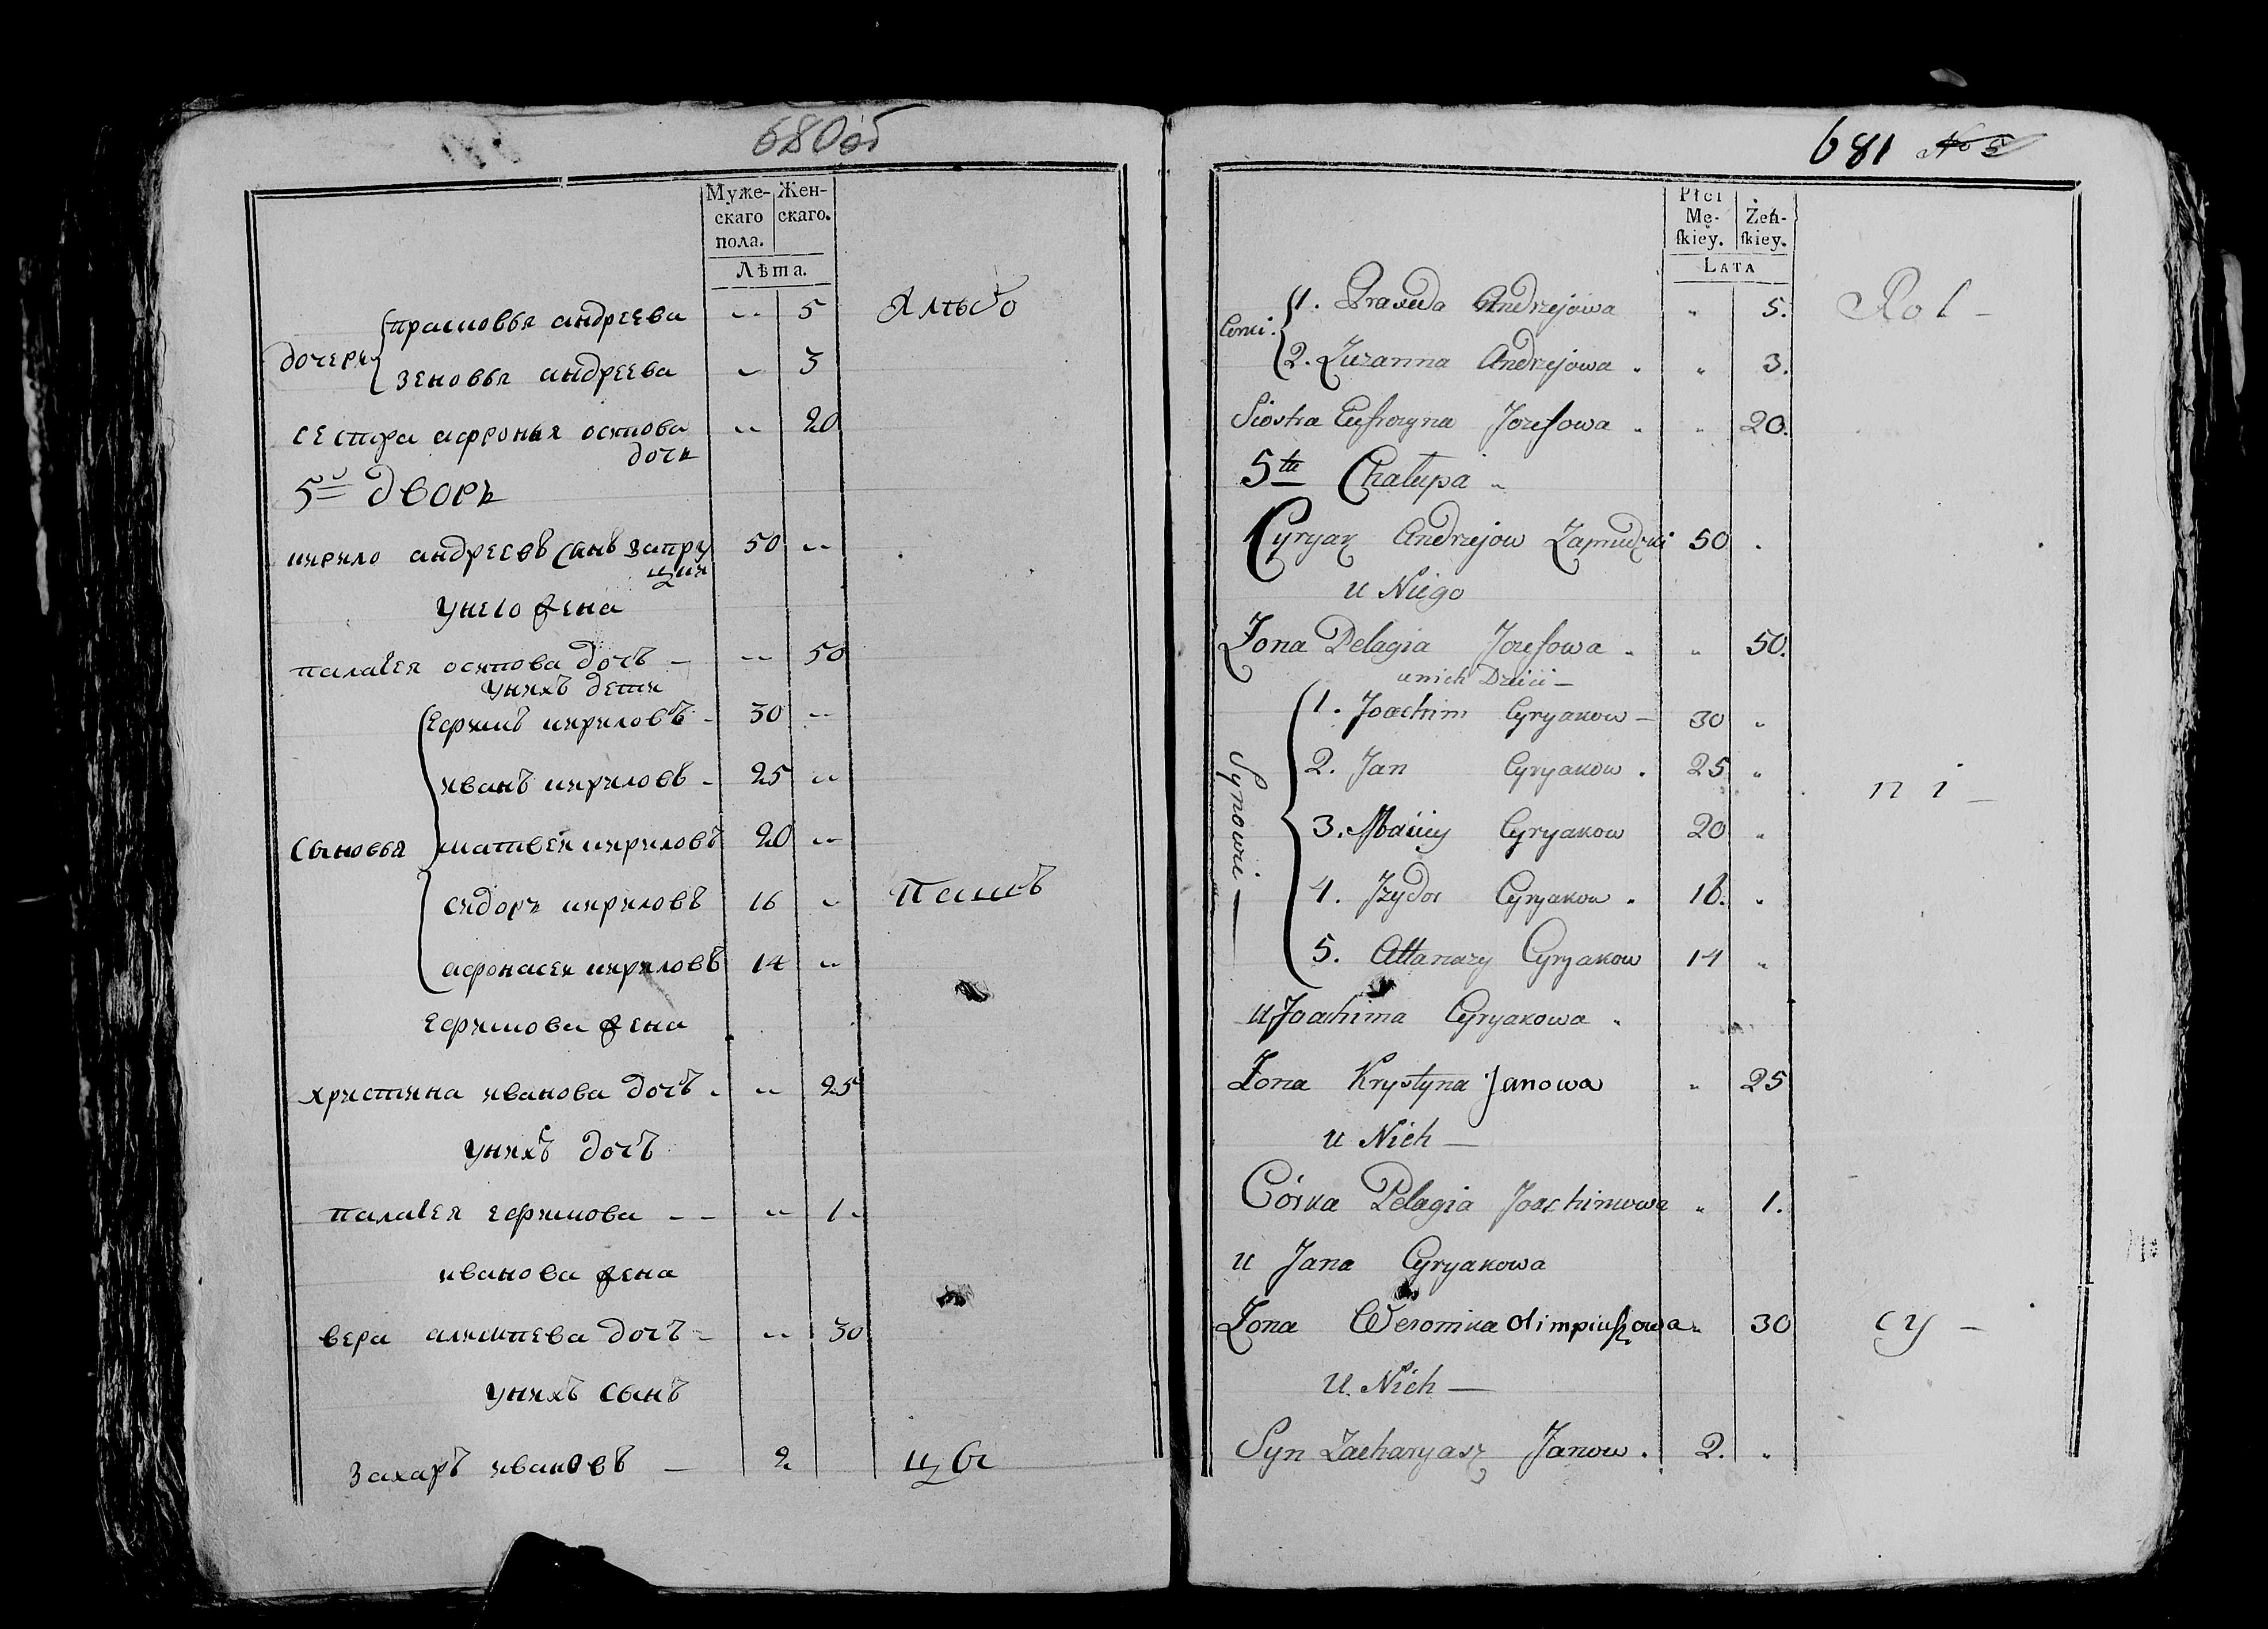 680об
Муже- Жен-
скаго скаго.
пола.
Лѣта.
дочери прасковья андреева -- 5
зеновья андреева - 3
сестра афронья осипова -- 20
дочь
5й дворъ
кирило андреевъ сынъ запру 50 --
цки
унего жена
палагея осипова дочъ - -- 50
унихъ дети
ефимъ кириловъ - 30 --
иванъ кириловъ - 25 --
сыновья матвеи кириловъ 20 --
сидоръ кириловъ 16 -
афонасеи кириловъ 14 --
ефимова жена
христина иванова дочъ - -- 25
унихъ дочъ
палагея ефимова -- -- 1-
иванова жена
вера дочъ - -- 30
унихъ сынъ
захаръ ивановъ - 2
681 No 5
Płci
Mę- Żeń-
ſkiey. ſkiey.
LATA
Corki. 1. Praxeda Andrzejowa " 5. Rol -
2. Zuzanna Andrzejowa . " 3.
Siostra Eufrozyna Jozefowa . " 20.
5ta Chałupa
Cyryak Andrzejow 50 .
u Niego
Żona Pelagia Jozefowa . " 50.
u nich Dzieci -
Synowie 1. Joachim Cyryakow - 30 "
2. Jan Cyryakow . 25 " ni -
3. Cyryakow 20 "
4. Jzydor Cyryakow . 16. "
5. Attanazy Cyryakow 14 "
u Joachima Cyryakowa .
Żona Krystyna Janowa " 25
u Nich -
Córka Pelagia Joachimowa " 1.
u Jana Cyryakowa
Żona Weronika Olimpiuszowa " 30 cy -
U Nich -
Syn Zacharyasz Janow . 2. "